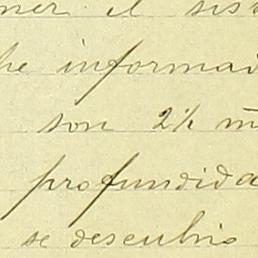 ner el sis
he informad
son 2½ m
profundida
se descubrio